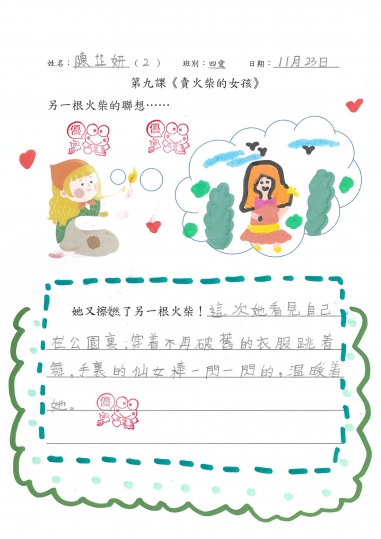 姓名：陳芷妍（2） 班別：四愛 日期：11月23日
第九課《賣火柴的女孩》
另一根火柴的聯想……
優
優
她又擦燃了另一根火柴！這次她看見自己
在公園裏，穿着不再破舊的衣服跳着
舞。手裏的仙女棒一閃一閃的，溫暖着
她。
優